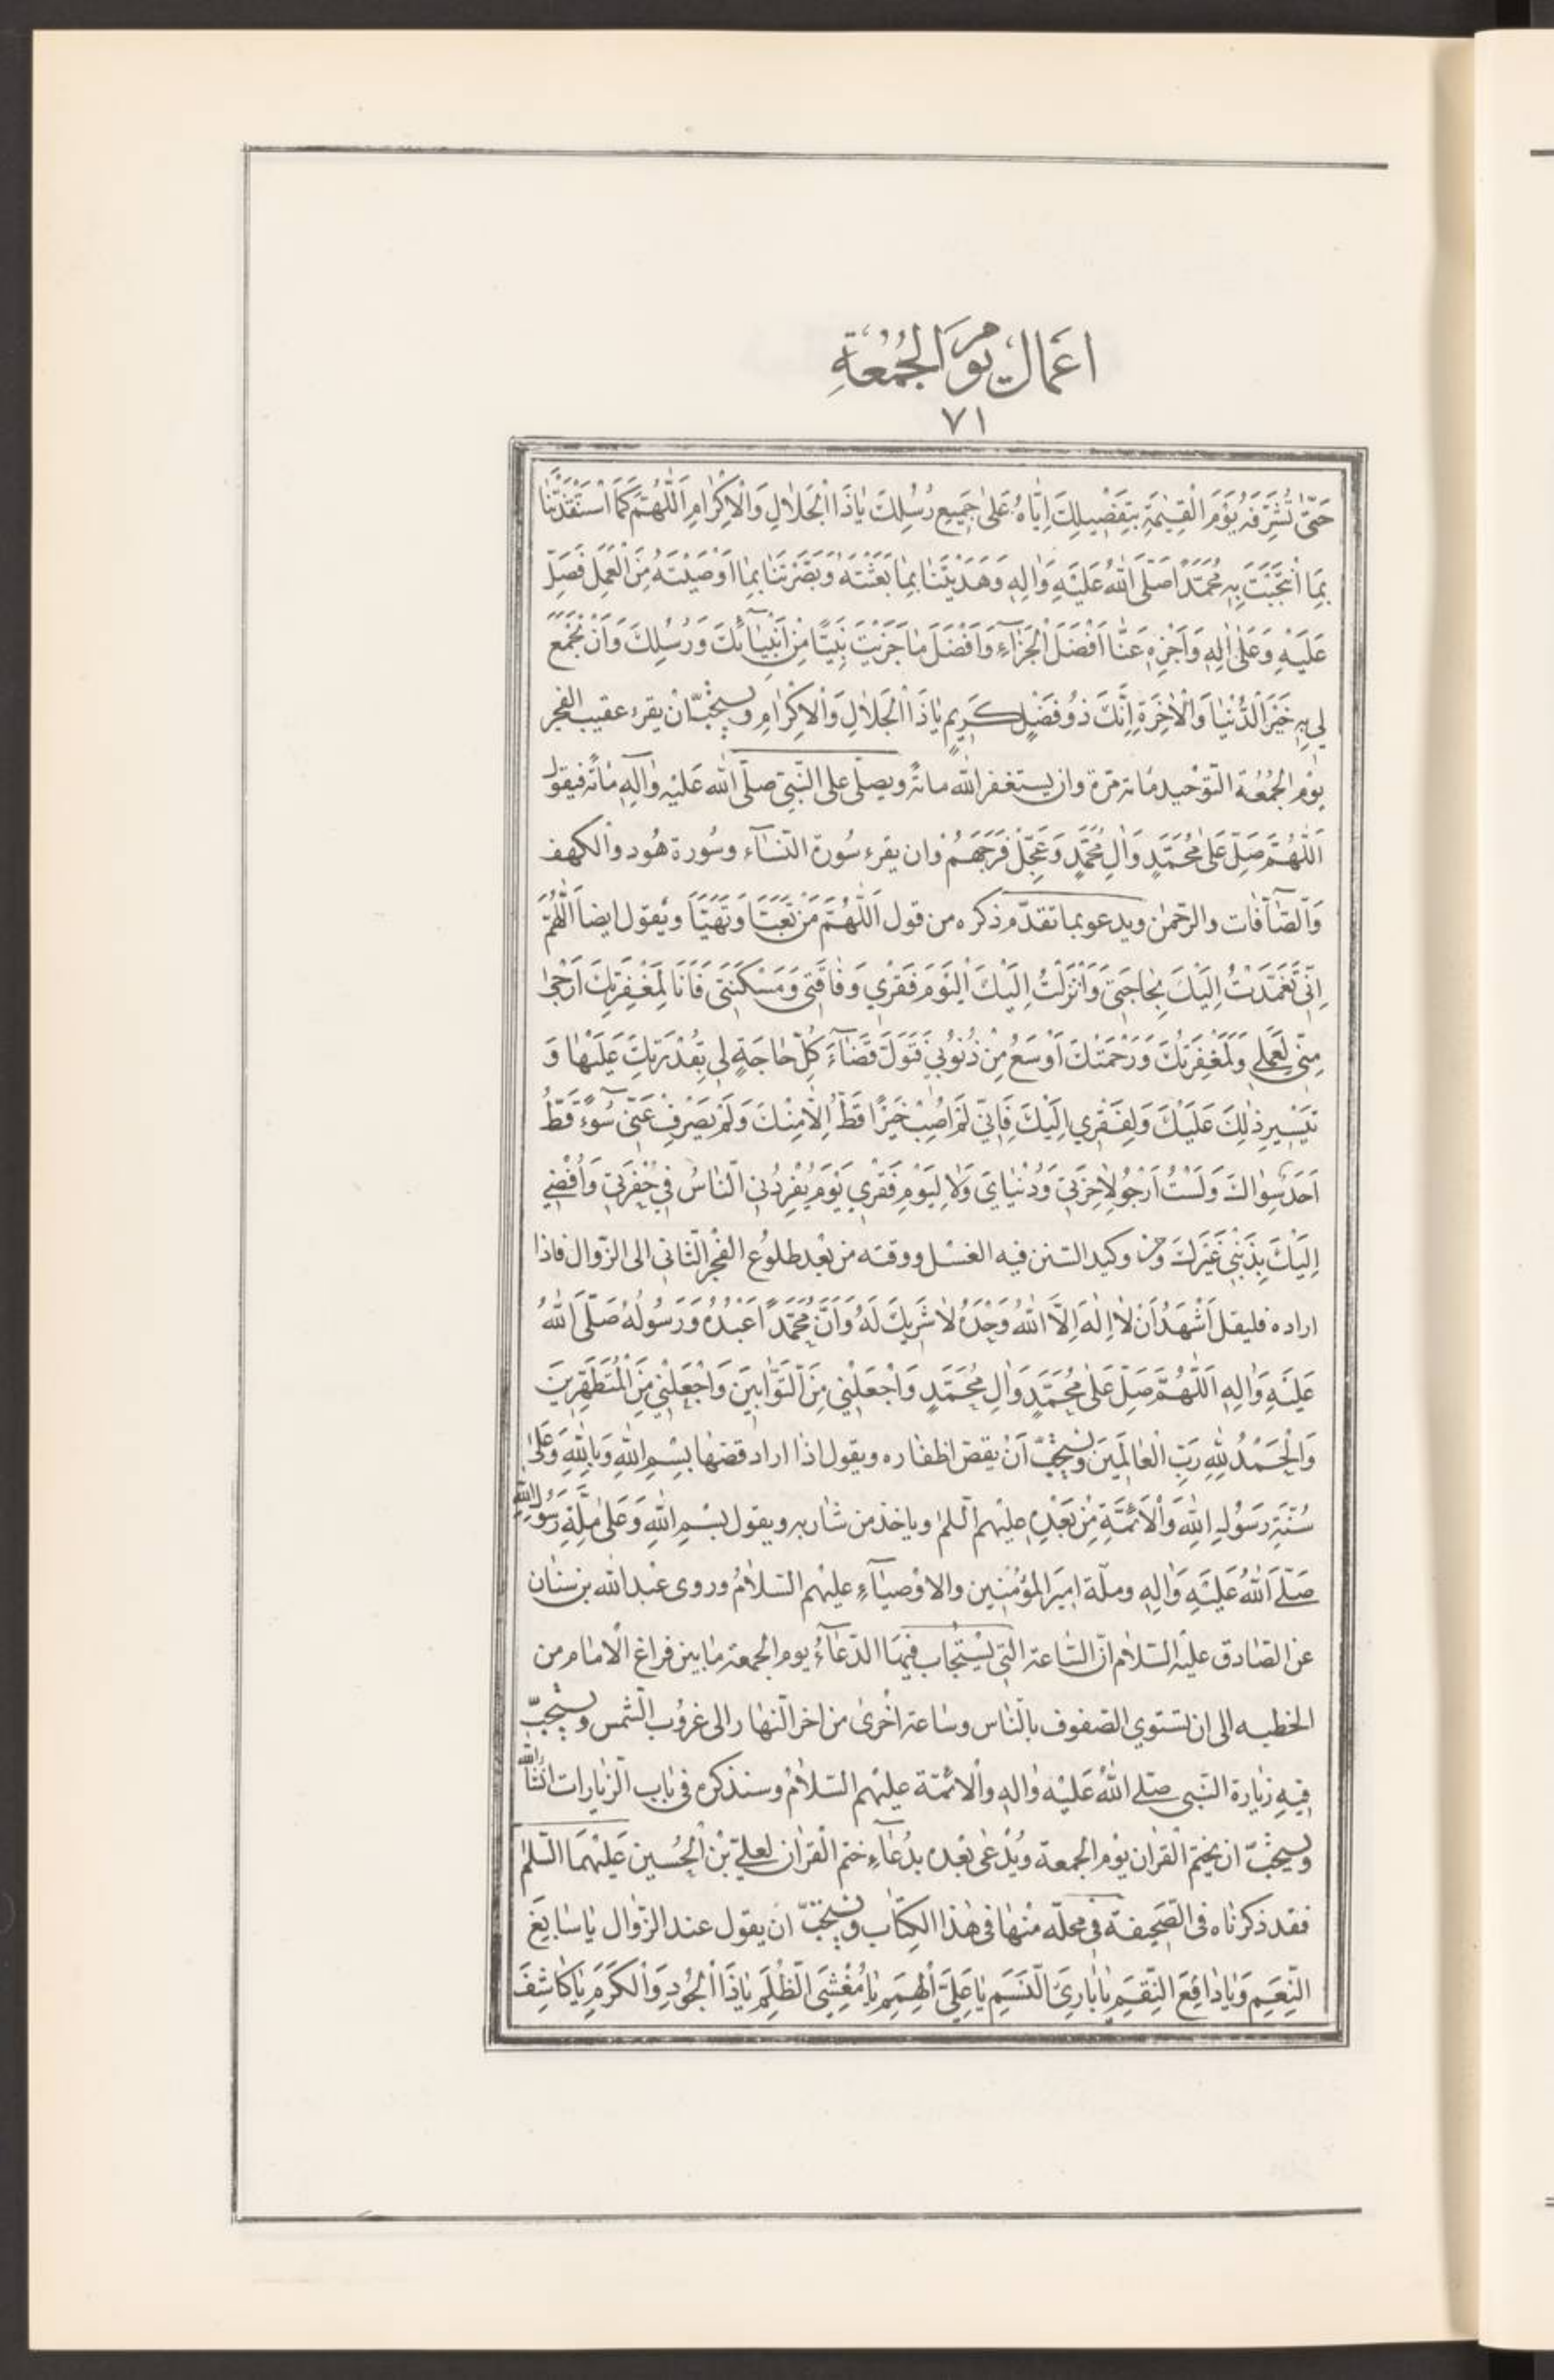 اعَمال يَومِ الجُمُعَةِ
٧١
حَتّىٰ تُشَرِّفَهُ يَوْمَ الْقِيٰمَةِ بِتَفْضِيلِكَ اِيّٰاهُ عَلىٰ جَمِيعِ رُسُلِكَ يٰاذَا الْجَلاٰلِ وَالْاِكْرٰامِ اَللّٰهُمَّ كَمَا اسْتَنْقَذْتَنٰا
بِمَا انْتَجَبْتَ بِهِ مُحَمَّدًا صَلَّى اللهُ عَلَيْهِ وَاٰلِهِ وَهَدَيْتَنٰا بِمٰا بَعَثْتَهُ وَبَصَّرْتَنٰا بِمٰا اَوْصَيْتَهُ مِنَ الْعَمَلِ فَصَلِّ
عَلَيْهِ وَعَلىٰ اٰلِهِ وَاَجْزِهِ عَنّٰا اَفْضَلَ الْجَزٰآءِ وَاَفْضَلَ مٰا جَزَيْتَ نَبِيًّا مِنْ اَنْبِيٰآئِكَ وَرُسُلِكَ وَاَنْ تَجْمَعَ
لِي بِهِ خَيْرَ الدُّنْيٰا وَالْاٰخِرَةِ اِنَّكَ ذُو فَضْلٍ كَرِيمٍ يٰاذَا الْجَلاٰلِ وَالْاِكْرٰامِ ويستحبّ ان يقرء عقيب الفجر
يوْم الجُمُعَة التّوْحيد مٰاته مرّة وان يستغفر الله مائةً ويصلّى على النّبىّ صلّى الله عَليْه وٰآلِهِ مٰاةً فيقول
اَللّٰهُمَّ صَلِّ عَلىٰ مُحَمَّدٍ وَاٰلِ مُحَمَّدٍ وَعَجِّلْ فَرَجَهُمْ وان يقرء سُورة النّسٰآء وسُورة هُود والكهف
وَالصّٰآفّٰات والرّحمٰن ويدعو بما تقدّم ذكره من قول اَللّٰهُمَّ مَنْ تَعَبَّاَ وَتَهَيَّاَ ويقول ايضاً اَللّٰهُمَّ
اِنّى تَعَمَّدْتُ اِلَيْكَ بِحٰاجَتِىٖ وَاَنْزَلْتُ اِلَيْكَ الْيَوْمَ فَقْرِي وَفٰاقَتِى وَمَسْكَنَتِى فَاَنَا لِمَغْفِرَتِكَ اَرْجىٰ
مِنّى لِعَمَلِي وَلَمَغْفِرَتُكَ وَرَحْمَتُكَ اَوْسَعُ مِنْ ذُنُوبِي فَتَوَلَّ قَضٰآءَ كُلِّ حٰاجَةٍ لِي بِقُدْرَتِكَ عَلَيْهٰا وَ
تَيْسِيرِ ذٰلِكَ عَلَيْكَ وَلِفَقْرِي اِلَيْكَ فَاِنّي لَمْ اُصِبْ خَيْرًا قَطُّ اِلّٰا مِنْكَ وَلَمْ يَصْرِفْ عَنّى سُوٓءً قَطُّ
اَحَدٌ سِوٰاكَ وَلَسْتُ اَرْجُو لِاٰخِرَتِي وَدُنْيٰايَ وَلاٰ لِيَوْمِ فَقْرِي يَوْمَ يُفْرِدُنِي النّٰاسُ فِي حُفْرَتِي وَاُفْضِي
اِلَيْكَ بِذَنْبِي غَيْرَكَ وَمن وكيد السّنن فيه الغسل ووقته من بعْد طلوع الفجْر الثّانى الى الزّوال فاذا
اراده فليقل اَشْهَدُ اَنْ لاٰ اِلٰهَ اِلَّا اللهُ وَحْدَهُ لاٰ شَرِيكَ لَهُ وَاَنَّ مُحَمَّدًا عَبْدُهُ وَرَسُولُهُ صَلَّى اللهُ
عَلَيْهِ وَاٰلِهِ اَللّٰهُمَّ صَلِّ عَلىٰ مُحَمَّدٍ وَاٰلِ مُحَمَّدٍ وَاجْعَلْنِي مِنَ التَّوّٰابِينَ وَاجْعَلْنِي مِنَ الْمُتَطَهِّرِينَ
وَالْحَمْدُ لِلّٰهِ رَبِّ الْعٰالَمِينَ ويستحبّ اَنْ يقصّ اظفاره ويقول اذا اراد قصّها بِسْمِ اللهِ وَبِاللهِ وَعَلىٰ
سُنَّةِ رَسُولِ اللهِ وَالْاَئِمَّةِ مِنْ بَعْدِهِ عليْهم السّلم وياخذ من شٰاربه ويقول بِسْمِ اللهِ وَعَلىٰ مِلَّةِ رَسُولِ اللهِ
صَلَّى اللهُ عَلَيْهِ وَاٰلِهِ وملّة اميَر المؤْمنِين والاوْصيٰآءِ عليْهم السّلاٰمُ وروى عبْد الله بن سنٰان
عن الصّٰادق عليْه السّلاٰم انّ السّٰاعة الّتى يسْتجٰاب فيهَا الدّعٰآءُ يوم الجمعة مٰا بين فراغ الْامٰام من
الخطبه الى ان تستوي الصّفوف بالنّٰاس وسٰاعة اخْرىٰ من اخر النّهٰار الى غروُب الشّمس ويستحبّ
فيِهِ زيٰارة النّبى صلّى اللهُ عَليْه وٰاله والْائمّة عليْهم السّلاٰمُ وسنذكره فى بٰاب الزّيٰارات انشٰآ الله
ويستحبّ ان يختم القرٰان يوْم الجمعة ويُدْعىٰ بعْده بدُعٰآءِ ختم الْقرٰان لعلىّ بْن الْحُسين عَليْهمَا السّلم
فقد ذكرنٰاه فى الصّحيفة فى محلّه منْهٰا فى هٰذا الكِتٰاب ويستحبّ ان يقول عند الزّوٰال يٰا سٰابِغَ
النِّعَمِ وَيٰا دٰافِعَ النِّقَمِ يٰا بٰارِئَ النَّسَمِ يٰا عَلِيَّ الْهِمَمِ يٰا مُغْشِيَ الظُّلَمِ يٰا ذَا الْجُودِ وَالْكَرَمِ يٰا كٰاشِفَ